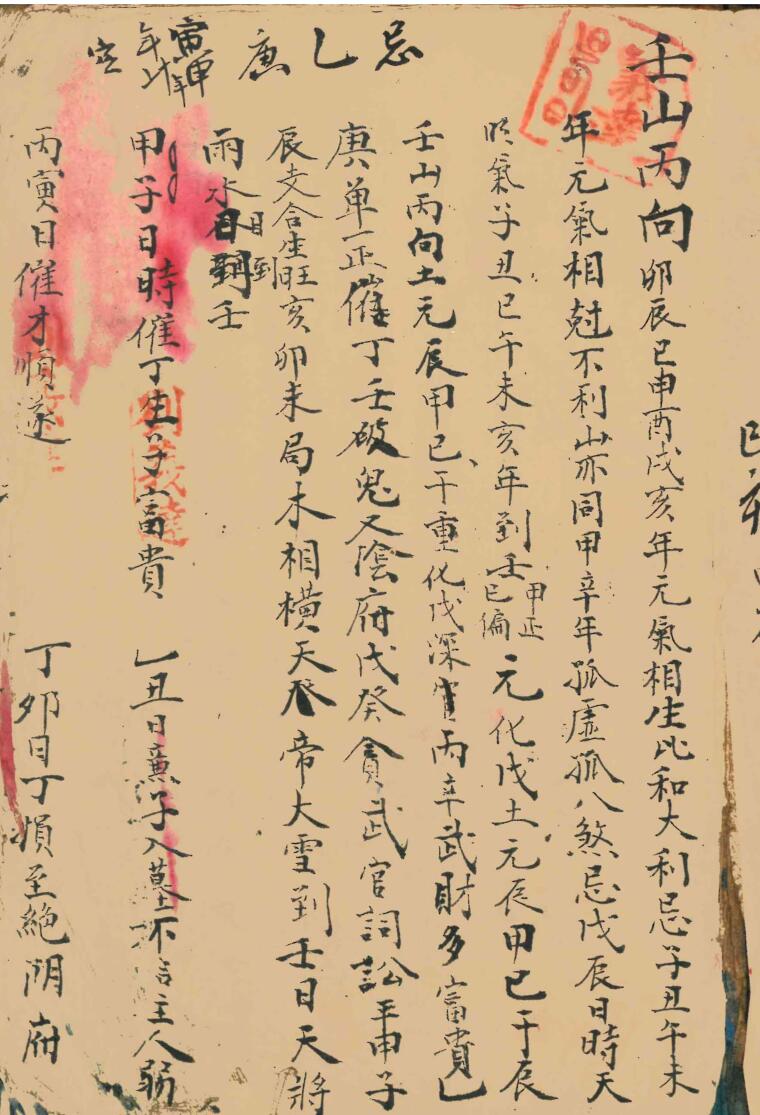 忌乙庚
寅申年
年
壬山丙向卯辰巳申酉戌亥年元氣相生比和大利忌子丑午未
年元氣相尅不利山亦同甲辛年孤虛孤八煞忌戊辰日時天
氣子丑巳午未亥年到壬甲正巳偏元化戊土元辰甲巳干辰
壬山丙向土元辰甲巳干重化戊深官丙辛武財多富貴乙
庚单正催丁壬破鬼又陰府戊癸貪武官詞訟平甲子
辰支合生旺亥卯未局木相横天帝大雪到壬日天將
雨水日到壬
甲子日時催丁生子富貴 乙丑日子入墓不言主人弱
丙寅日催才順遂 丁卯日丁損至絕阴府